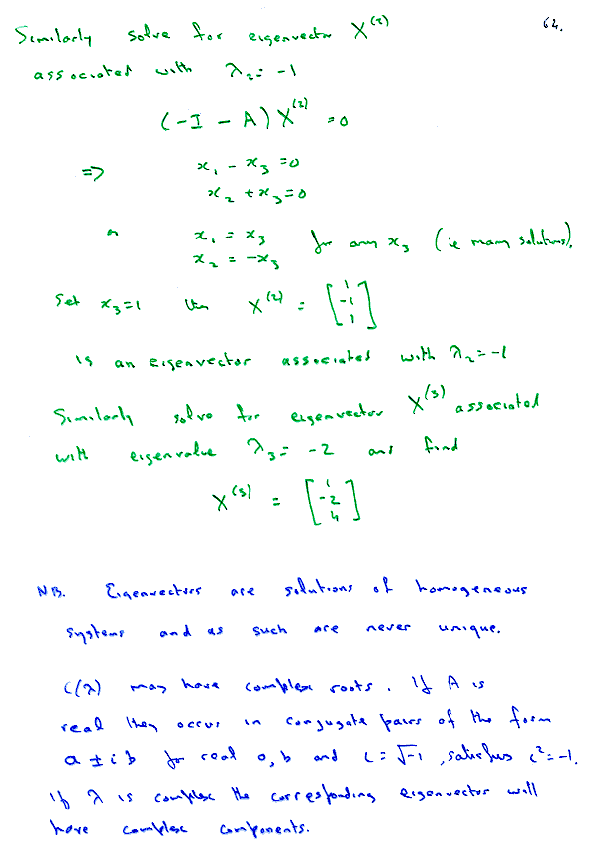 64.
Similarly solve for eigenvector X⁽²⁾
associated with λ₂ = -1
(-I - A) X⁽²⁾ = 0
=> x₁ - x₃ = 0
x₂ + x₃ = 0
or x₁ = x₃ for any x₃ (ie many solutions).
x₂ = -x₃
Set x₃ = 1 then X⁽²⁾ = [1 -1 1]
is an eigenvector associated with λ₂ = -1
Similarly solve for eigenvector X⁽³⁾ associated
with eigenvalue λ₃ = -2 and find
X⁽³⁾ = [1 -2 4]
NB. Eigenvectors are solutions of homogeneous
systems and as such are never unique.
C(λ) may have complex roots. If A is
real they occur in conjugate pairs of the form
a ± ib for real a, b and i = √-1, satisfies i² = -1.
If λ is complex the corresponding eigenvector will
have complex components.